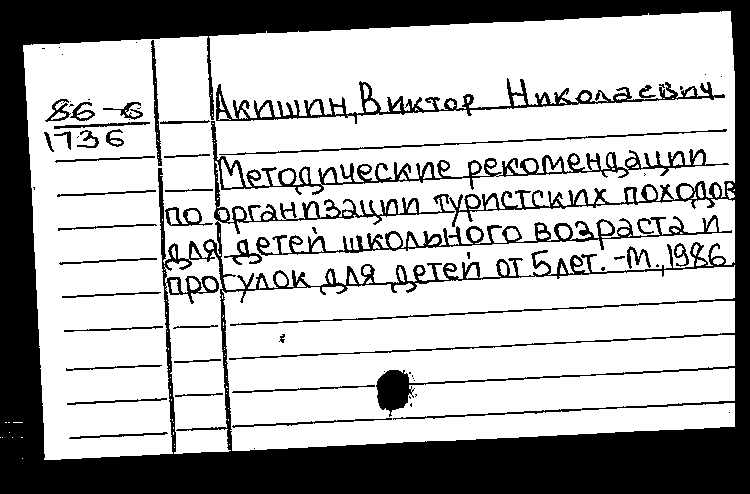 86-6
1736
Акишин, Виктор Николаевич
Методические рекомендации
по организации туристских походов
для детей школьного возраста и
прогулок для детей от 5 лет. -М., 1986.